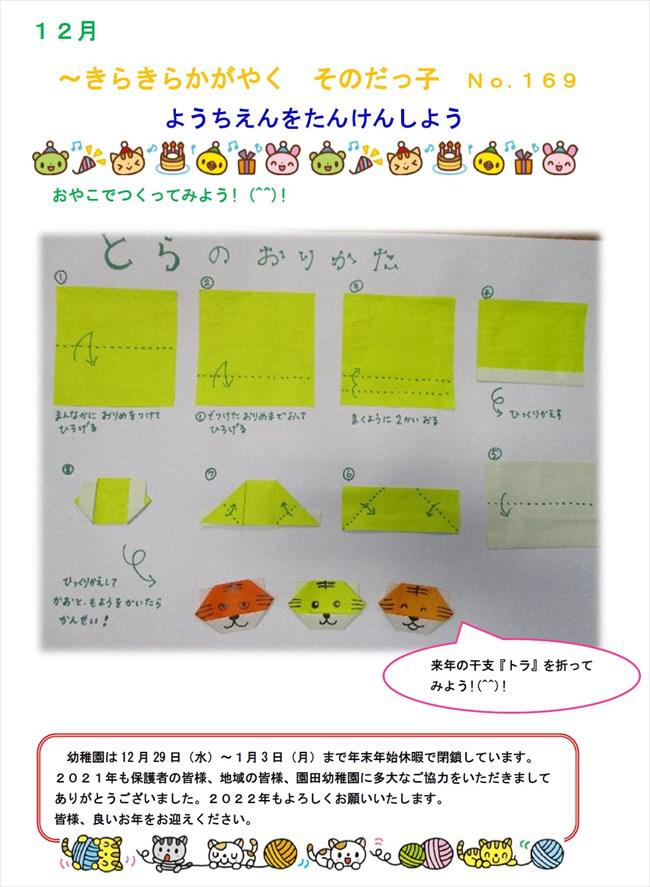 １２月
～きらきらかがやく　そのだっ子　Ｎｏ.１６９
ようちえんをたんけんしよう
おやこでつくってみよう！（^^）！
とらのおりかた
①
②
③
④
まんなかに おりめをつけて
ひろげる
①でつけた おりめまでおって
ひろげる
まくように 2かい おる
ひっくりかえす
⑧
⑦
⑥
⑤
ひっくりかえして
かおと、もようをかいたら
かんせい！
来年の干支『トラ』を折って
みよう！(^^)！
幼稚園は12月29日（水）～1月3日（月）まで年末年始休暇で閉鎖しています。
２０２１年も保護者の皆様、地域の皆様、園田幼稚園に多大なご協力をいただきまして
ありがとうございました。２０２２年もよろしくお願いいたします。
皆様、良いお年をお迎えください。